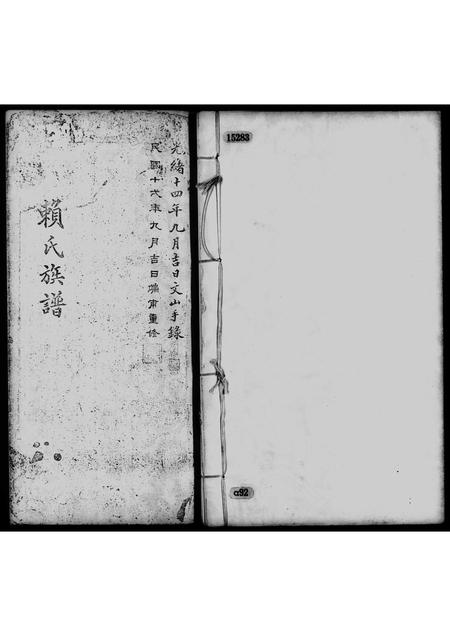 光緒十四年九月吉日文山手錄
民國十六年九月吉日 重修
賴氏族譜
15283
α92